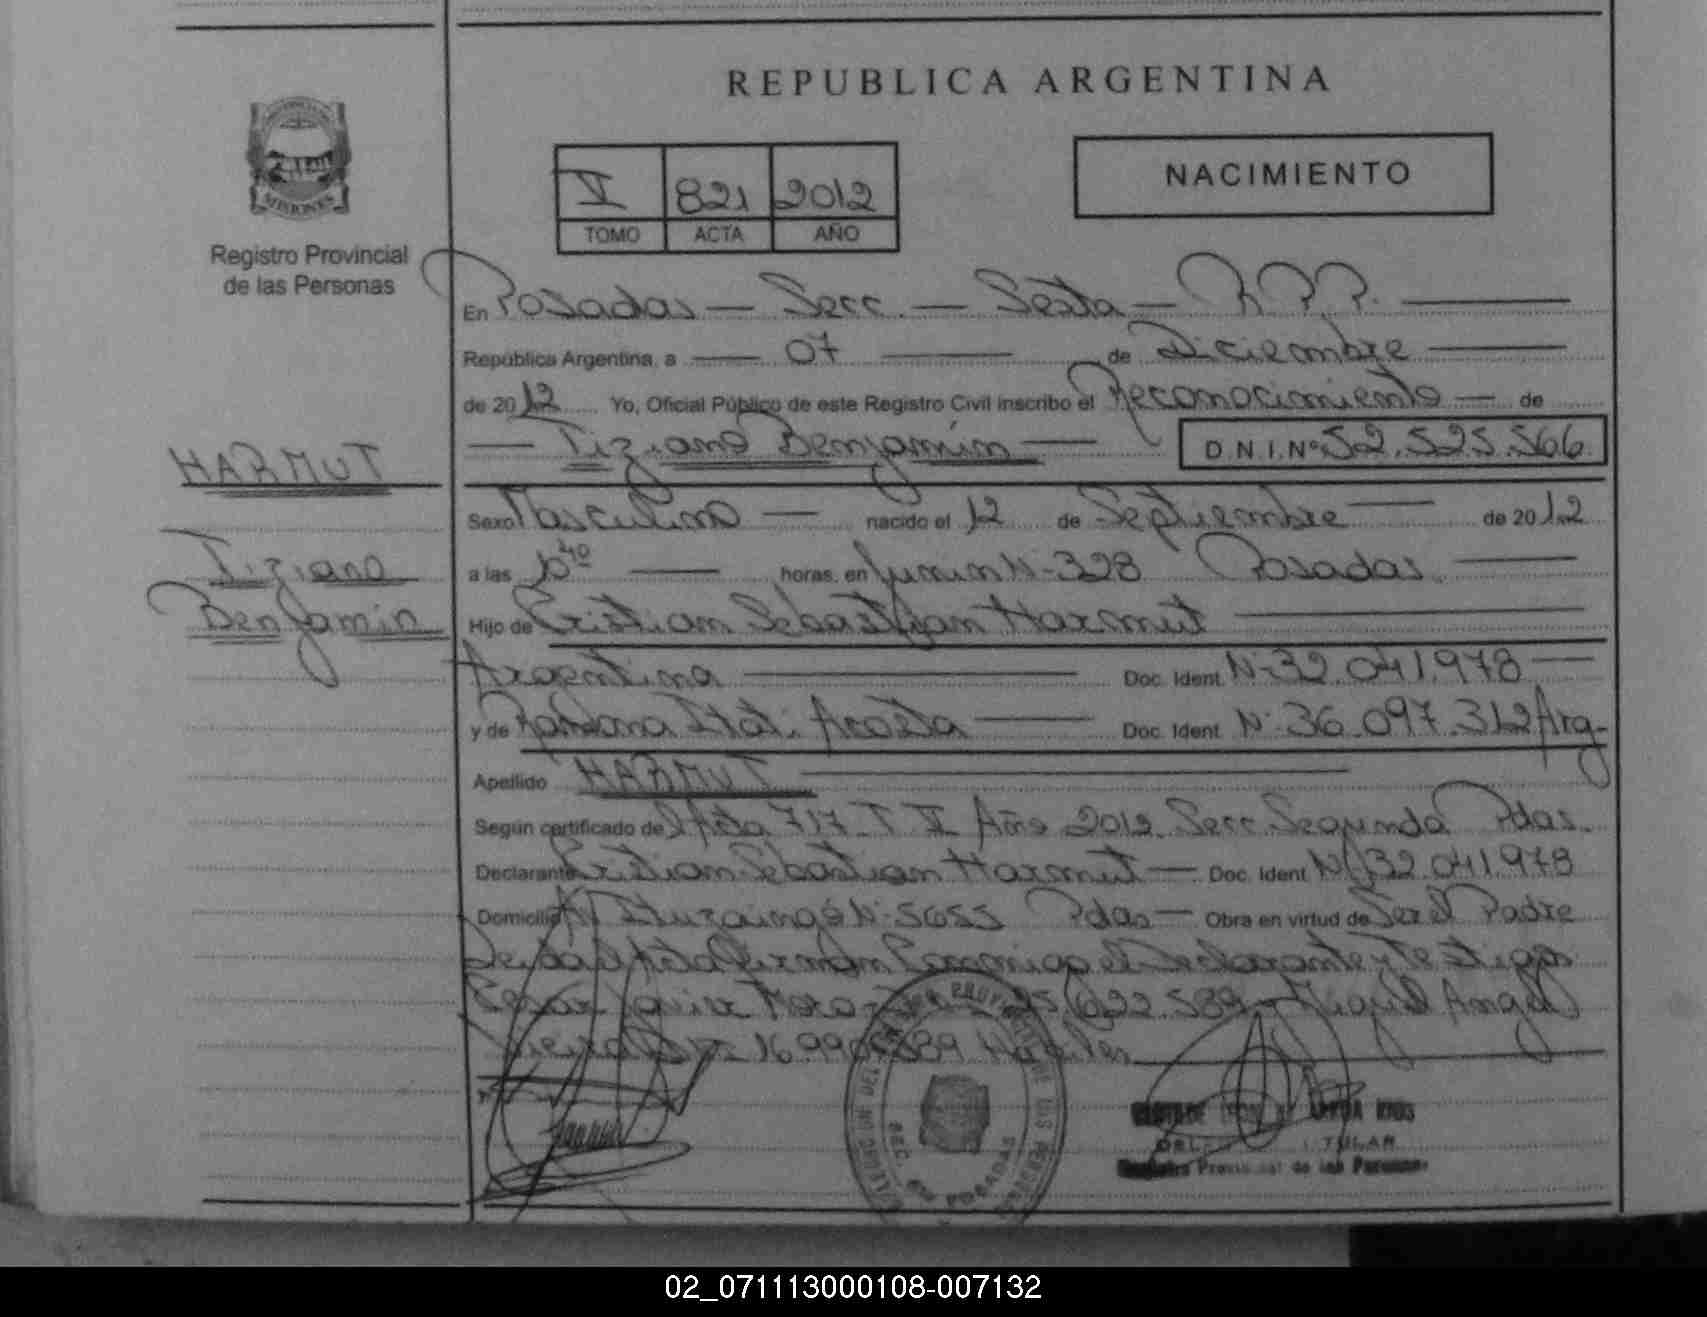 REPUBLICA ARGENTINA
V 821 2012
TOMO ACTA AÑO
NACIMIENTO
MISIONES
Registro Provincial
de las Personas
En Posadas — Secc. — Sexta — R.P.P.
República Argentina, a — 07 — de Diciembre
de 2012 Yo, Oficial Público de este Registro Civil inscribo el Reconocimiento — de
— Tiziano Benjamín — D.N.I. Nº 52.525.566
HARMUT
Tiziano
Benjamín
Sexo Masculino — nacido el 12 de Septiembre — de 2012
a las 10 40 — horas, en Junin N- 328 Posadas. —
Hijo de Cristian Sebastian Harmut
Argentina — Doc. Ident. N- 32.041.978 —
y de Ramona Itati Acosta — Doc. Ident. N- 36.097.312 Arg-
Apellido HARMUT
Según certificado del Acta 717 T. II Año 2012 Secc. Segunda Pdas.
Declarante Cristian Sebastian Harmut — Doc. Ident. N- 32.041.978
Domicilio Av Ituzaingó N- 5655 Pdas — Obra en virtud de Ser el Padre
Leida el Acta firman Conmigo el Declarante y Testigos
Cesar Javier 622.589 — Miguel Angel
16.990 Hábiles
SEC. 6ta POSADAS
TITULAR
Registro Provincial de las Personas
02_071113000108-007132